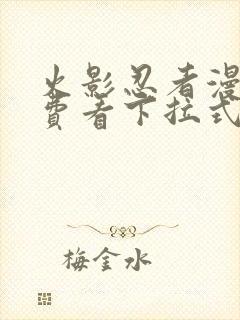 火影忍者漫
费看下拉式
梅金水